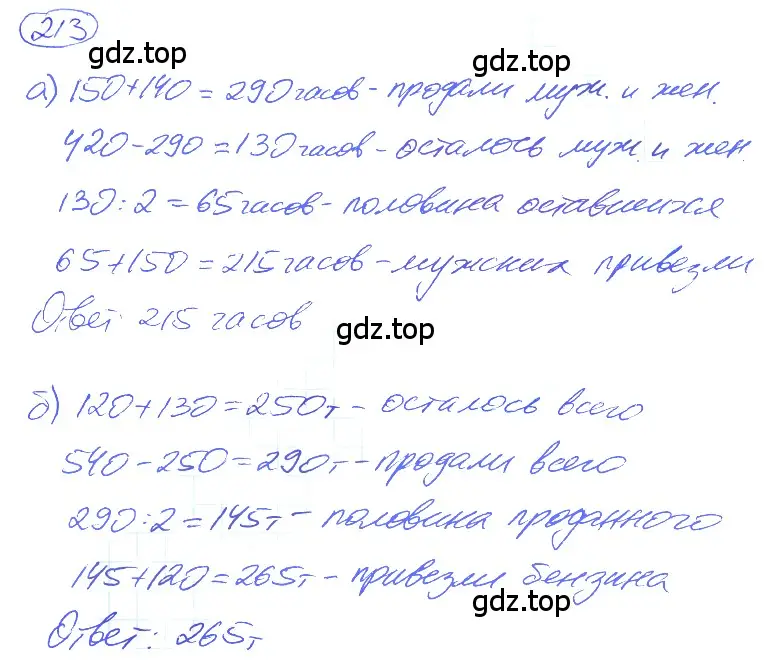 213
gdz.top
а) 150+140=290 часов - продали муж. и жен.
420-290=130 часов - осталось муж. и жен.
130:2=65 часов - половина оставшихся
65+150=215 часов - мужских привезли
Ответ: 215 часов
gdz.top
б) 120+130=250т - осталось всего
540-250=290т - продали всего
290:2=145т - половина проданного
145+120=265т - привезли бензина
gdz.top
Ответ: 265т